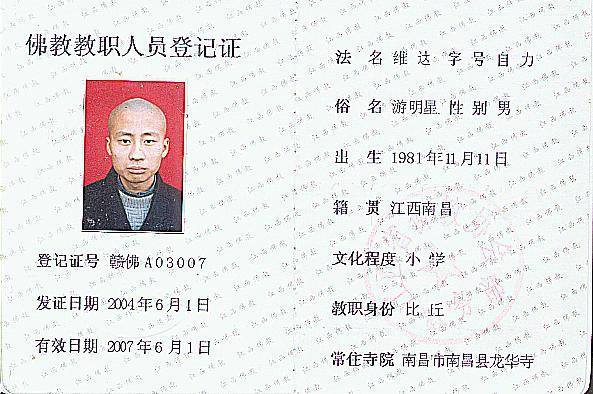 佛教教职人员登记证
登记证号 赣佛A03007
发证日期 2004年6月1日
有效日期 2007年6月1日
法 名 维 达 字 号 自 力
俗 名 游明星 性 别 男
出 生 1981年11月11日
籍 贯 江西南昌
文化程度 小 学
教职身份 比 丘
常住寺院 南昌市南昌县龙华寺